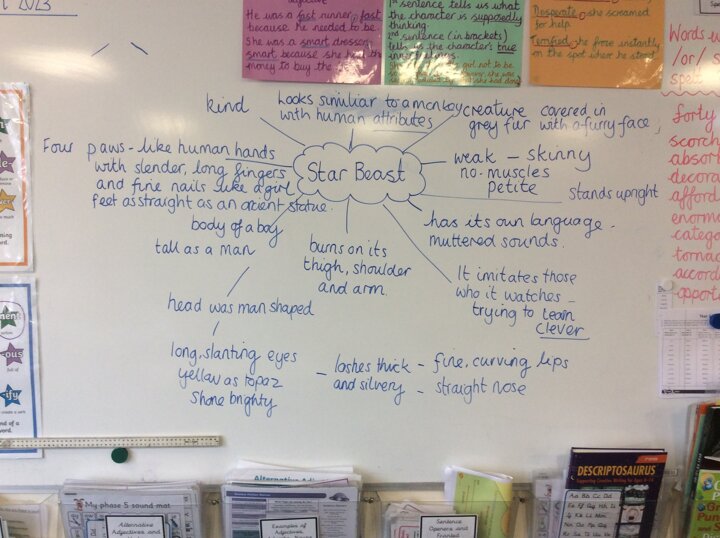 2023
adjective
He was a fast runner, fast
because he needed to be.
She was a smart dresser,
smart because she had the
money to buy the
sentence tells us what
the character is supposedly
thinking.
2nd sentence (in brackets)
tells us the character's true
Desperate, she screamed
for help
Terrified, she froze instantly
on the spot where he stood.
Words w
/or/ s
spel
forty
scorch
absor
decora
afford
enorm
catego
torna
accord
opport
kind
Looks simuliar to a monkey
with human attributes
creature covered in
grey fur with a furry face,
Four paws - like human hands
with slender, long fingers
and fine nails like a girl
feet as straight as an acient statue.
Star Beast
weak - skinny
no-muscles
petite
stands upright
has its own language -
muttered sounds.
body of a boy
tall as a man
burns on its
thigh, shoulder
and arm.
It imitates those
who it watches -
trying to learn
clever
head was man shaped
long, slanting eyes
yellow as topaz
shone brightly
- lashes thick
and silvery
- fine, curving lips
- straight nose
ous
ify
My phase 5 sound-mat
Alternative
Adjectives and
Alternative Adj
Examples of
Adjectives
Sentence
Openers and
Fronted
DESCRIPTOSAURUS
Supporting Creative Writing for Ages 8-14
Aa Bb Cc Dd